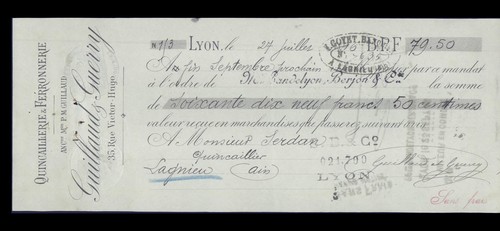 QUINCAILLERIE & FERRONNERIE
ANCNE MON P.M. GUILLAUD
Guillaud & Guerry
35, Rue Victor-Hugo
N 1/3 LYON, le 27 juillet B.P.F 79.50
Au fin Septembre prochain par ce mandat
à l'ordre de la somme
de Soixante dix neuf francs 50 centimes
valeur reçue en marchandises que passerez suivant avis
A Monsieur Serdan
Quincaillier
Lagnieu Ain
& Co
021,790
LYON
Guillaud & Guerry